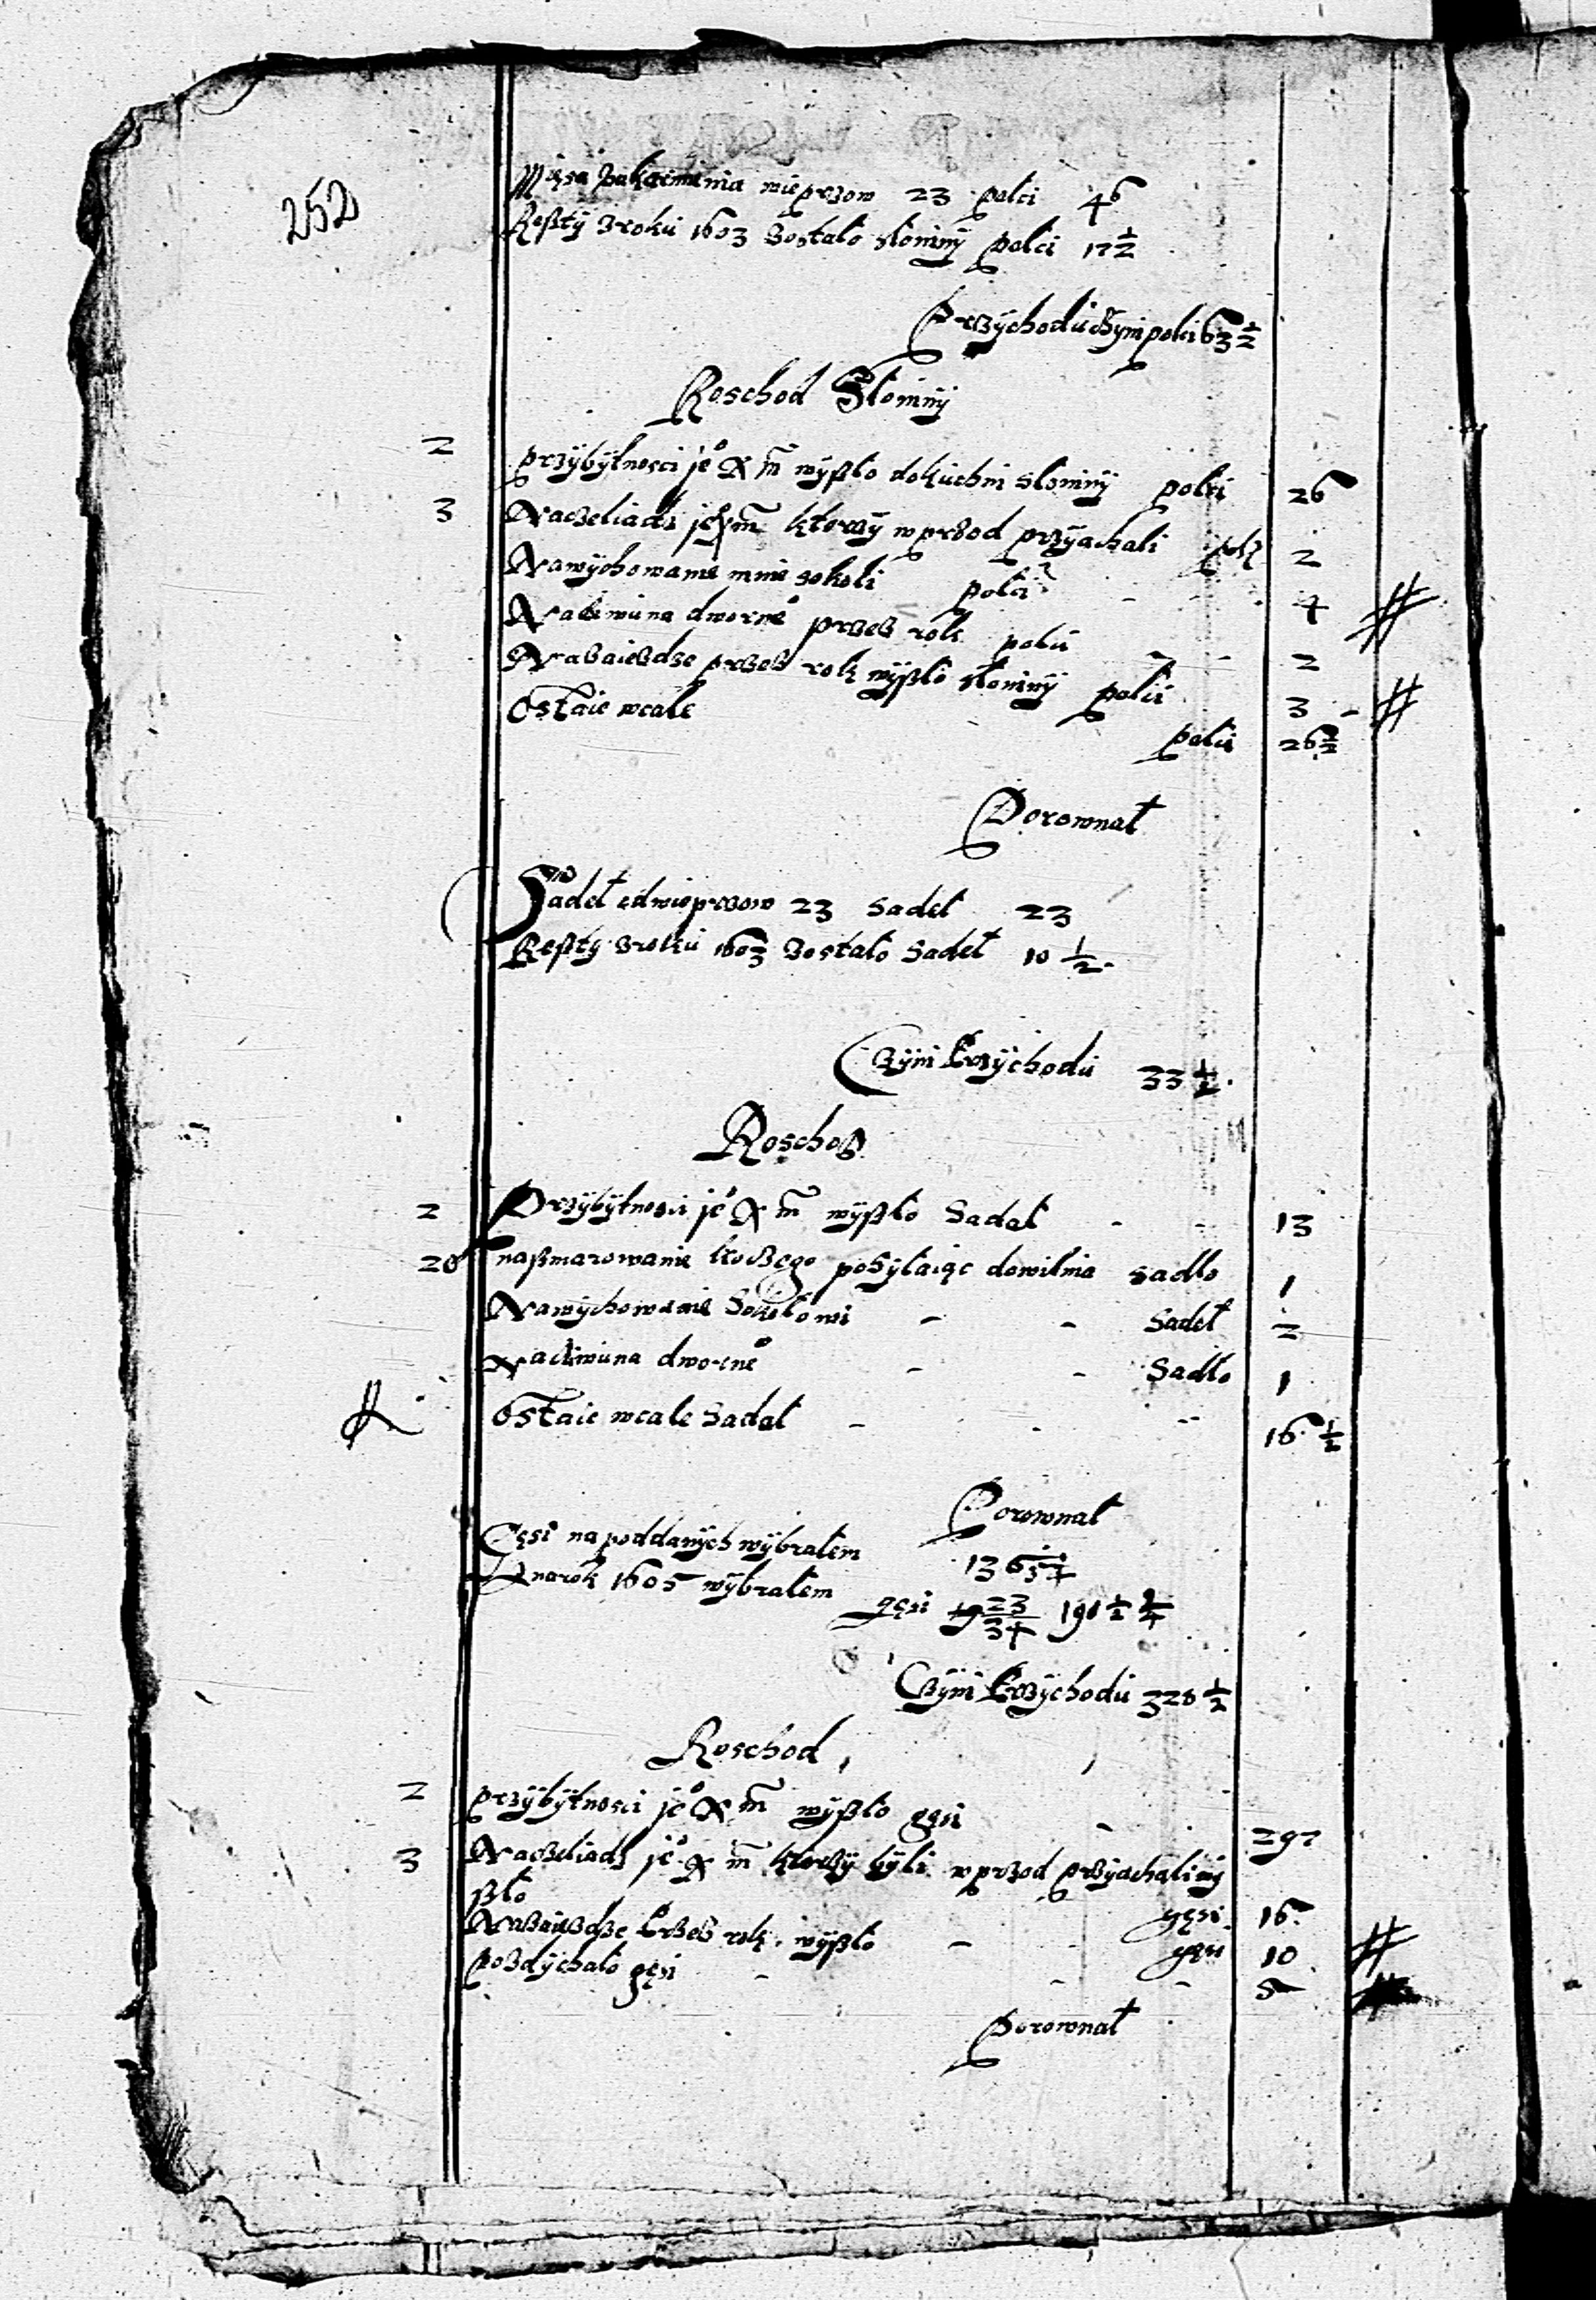 252
Mięsa wieprzow 23 polci 46
Resztÿ z roku 1603 zostało słoninÿ polci 17 1/2
Przÿchodu czÿni polci 63 1/2
Roschod Słoninÿ
2 przÿbÿtnosci je° X m wÿszło dokuchni słoninÿ polci 26
3 Naczeliadz je° X m ktorzÿ wprzod przÿachali polci 2
Nawÿchowanie mnie sokoli polci 4 #
Naciwuna dworne° przez rok polci 2
Nazaiezdze przez rok wÿszło słoninÿ polci 3 #
Ostaie wcale
polci 26 1/2
Porownał
Sadeł odwieprzow 23 sadeł 23
Reszty z roku 1603 zostało Sadeł 10 1/2
Czÿni Przÿchodu 33 1/2
Roschod
2 Przÿbÿtnosci je° X m wÿszło Sadeł 13
20 naszmarowanie posÿłaiąc dowilnia sadło 1
Nawÿchowanie Sokołowi Sadeł 2
Naciwuna dworne° Sadło 1
Ostaie wcale Sadeł 16 1/2
Porownał
Gęsi napoddanÿch wÿbrałem 136
Anarok 1605 wÿbrałem gęsi
Czÿni Przÿchodu 328 1/2
Roschod
2 przÿbÿtnosci je° X m wÿszło gęsi 297
3 Naczeliadz je° X m ktorzÿ bÿli wprzod przÿachali wÿ
szło gęsi 16
Nazaiezdze przez rok wÿszło gęsi 10 #
pozdÿchało gęsi 5
Porownał